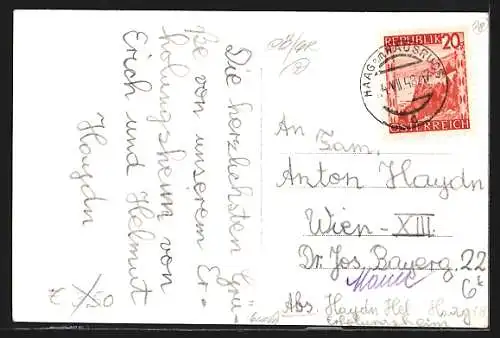 Die herzlichsten Grü-
ße von unserem Er-
holungsheim von
Erich und Helmut
Haydn
REPUBLIK 20
ÖSTERREICH
HAAG am HAUSRUCK
An
Fam.
Anton Haydn
Wien-XIII.
Dr. Jos. Bayerg. 22
Abs. Haydn Hel Haag
Erholungsheim